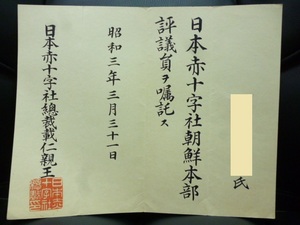 氏
日本赤十字社朝鮮本部
評議員ヲ嘱託ス
昭和三年三月三十一日
日本赤十字社總裁載仁親王